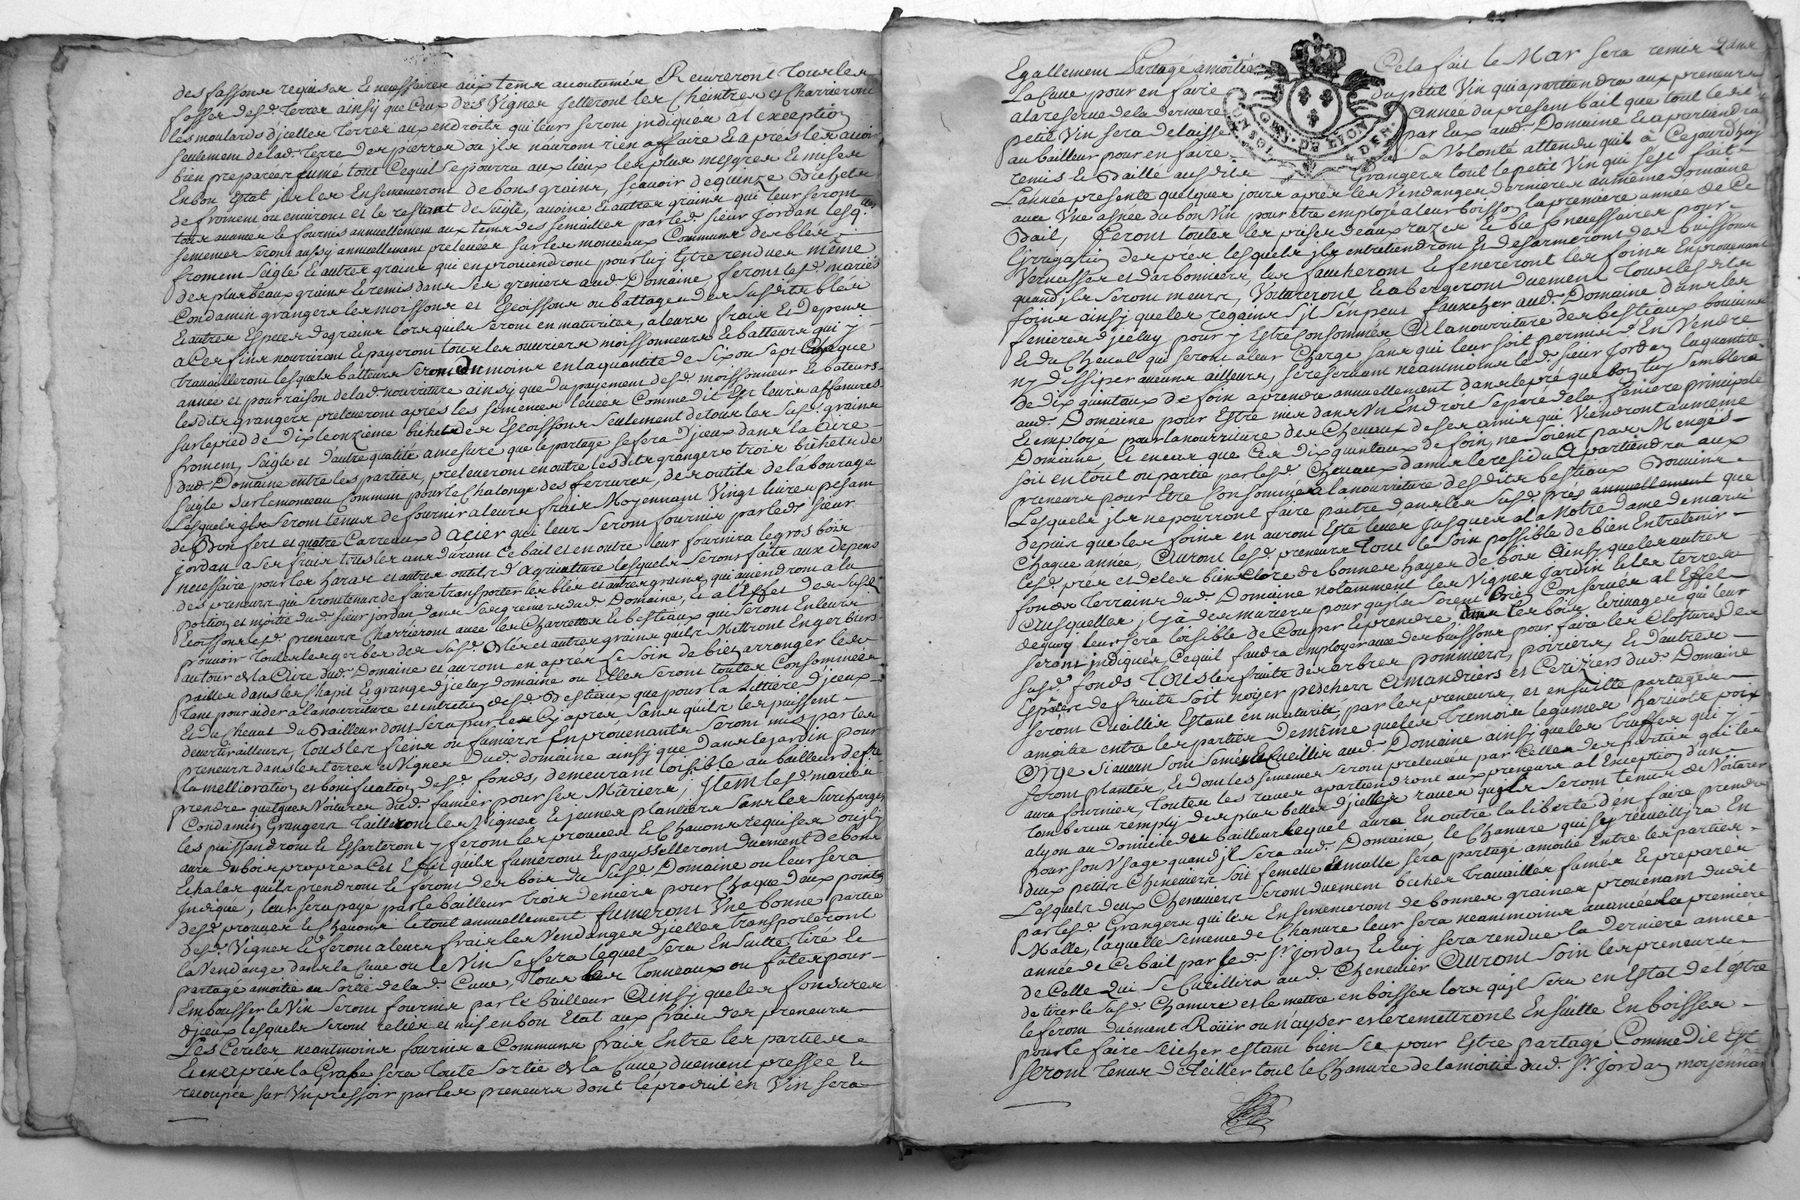 des fassons requises & necessaires aux tems accoutumés Recureront tous les
fosses desd. terres ainsy que Ceux des Vignes Jetteront les Cheintres et Charrieront
les moulards d'jcelles terres aux endroits qui leurs seront jndiqués a l'exception
seulement de lad. terre des pierres ou jls nauront rien affaire & apres les avoir
bien preparées fumé tout Cequil se pourra aux lieux les plus mesgres & mises
En bon Estat jls les Ensemenceront de bons grains, scavoir de quinze Bichets
de froment ou environs et le restant de seigle, avoine & autres grains qui leur seront
tous avancés & fournis annuellement aux tems des semailles par led. sieur Jordan lesq.lles
semences seront aussy annuellement prelevées sur les monceaux Communs des bleds
froment seigle & autres grains qui en proviendront pour luy Estre rendues même
des plus beaux grains & remis dans ses greniers aud. Domaine feront lesd. mariés
Condamin grangers les moissons et Escoissons ou battages des susdits bleds
& autres Especes de grains lors quils seront en maturités, a leurs frais & depens
a Ces fins nourriront & payeront tous les ouvriers moissonneurs & batteurs qui y
travailleront lesquels batteurs seront du moins en la quantité de six ou sept chaque
année et pour raison de lad. nourriture ainsy que du payement desd. moissonneurs & bateurs
lesdits Grangers preleveront apres les semences levées Comme dit Est leurs affanures
sur le pied de dix le onzieme bichet des Escoissons seulement de tous les susd. grains
froment, seigle et d'autre qualité a mesure que le partage se fera d'jceux dans la Cure
dud. Domaine entre les parties, preleveront en outre lesdits grangers trois bichets de
seigle sur le monceau Commun pour le Chalonge des ferrures, des outils de labourage
Lesquels jls seront tenus de fournir a leurs frais Moyennant Vingt livres pesant
de Bon fert et quatre Carreaux d'acier qui leur seront fournis par ledit sieur
Jordan a ses frais tous les ans durant Ce bail et en outre leur fournira le gros bois
necessaire pour les haras et autres outils d'agriculture lesquels seront faits aux depens
des preneurs qui seront tenus de faire transporter les bleds et autres grains qui aviendront a la
portion et moitié dud. sieur jordan dans ses greniers dud. Domaine, & a l'Effet des susd.
Escossons lesd. preneurs Charrieront avec les Charrettes & bestiaux qui seront En leurs
pouvoir toutes les gerbes des susd. bleds et autres grains quils Mettront En gerbiers
autour de la Cure dud. Domaine et auront en apres Le soin de bien arranger les
pailles dans les Chapit & grange d'jceluy domaine ou Elles seront toutes Consommées
tant pour aider a la nourriture et entretien desd. Bestiaux que pour la littiere d'jceux
& du Cheval du Bailleur dont sera parlé Cy apres sans quils les puissent
devertir ailleurs, tous les fiens ou fumiers En provenants seront mis par les
preneurs dans les terres et Vignes dud. domaine ainsy que dans le jardin pour
la mellioration et bonification desd. fonds, demeurant loisible au bailleur de fre.
prendre quelques Voitures dud. fumier pour ses Muriers, jtem lesd. mariés
Condamin Grangers tailleront les Vignes & jeunes plantiers sans les surcharger
les puissardront & Essarteront y feront les provins & Chavons requises ou jls
aura du bois propre a Cet Effet quils fumeront & paysselleront duement de bons
Echalas quils prendront & feront des bois du susd. Domaine ou leur sera
jndiqué, leur sera payé par le bailleur trois deniers pour Chaque deux points
desd. provins & Chavons le tout annuellement fumeront Une bonne partie
desd. Vignes & feront a leurs frais les Vendanges d'jcelles transporteront
la Vendange dans la Cuve ou le Vin se fera lequel sera Ensuitte tiré &
partagé amoitié au sortir de lad. Cuve, tous les tonneaux ou fûtes pour
Embousser le Vin seront fournis par le bailleur Ainsy que les fonsures
d'jceux lesquels seront reliés et mis en bon Etat aux frais des preneurs
Les Cercles neantmoins fournis a Communs frais Entre les parties
& en apres la Grape sera toute sortie de la Cuve duement pressée &
recoupée sur Un pressoir par les preneurs dont le produit en Vin sera
Egallement Partagé amoitié Cela fait le Mar sera remis dans
La Cuve pour en faire du petit Vin qui apartiendra aux preneurs
a la reserve de la derniere année du present bail que tout led.
petit Vin sera delaissé par Eux aud. Domaine & apartiendra
au bailleur pour en faire a sa Volonté attendu quil a Cejourd'huy
remis & Baillé ausdits Grangers tout le petit Vin qui s'est fait
L'année presente quelques jours apres les Vendanges dernieres au même domaine
avec Une asnée du bon Vin pour être employé a leur boisson la premiere année de Ce
Bail, feront toutes les prises d'eaux rases & biefs necessaires pour
L'jrrigation des pres lesquels jls entretiendront & desarmeront des buissons
Vernesses et darbonnieres les faucheront & feneront les foins En provenant
quand jls seront meurs, Voitureront & abergeront duement tous lesdits
foins ainsy que les regains s'jl s'en peut faucher aud. Domaine dans les
fenieres d'jceluy pour y Estre Consommés A la nourriture des bestiaux bovins
& du Cheval qui seront a leur Charge sans qui leur soit permis d'En Vendre
ny dissiper aucuns ailleurs, se reservant neantmoins led. sieur Jordan la quantité
de dix quintaux de foin a prendre annuellement dans le pré que bon luy semblera
aud. Domaine pour Estre mis dans Un Endroit separé de la feniere principale
& employé pour la nourriture des Chevaux de ses amis qui Viendront au même
Domaine & encas que Ces dix quintaux de foin, ne soient pas Mangés
soit en tout ou partie par lesd. Chevaux d'amis le residu apartiendra aux
preneurs pour être Consommés a la nourriture desdits bestiaux Bouvine
Lesquels jls ne pourront faire paitre dans les susd. prés annuellement que
depuis que les foins en auront Esté levés jusques a la Notre Dame de mars
Chaque année, Auront lesd. preneurs tout le soin possible de bien Entretenir
lesd. prés et de les bien Clore de bonnes hayes de bois Ainsy que les autres
fonds terrains dud. Domaine notamment les Vignes Jardin & les terres
Ausquelles jl y a des muriers pour quils soient bien Conservés a l'Effet
dequoy leur sera loisible de Couper & prendre dans les bois & rivages qui leur
seront jndiqués Cequil faudra employer avec des buissons pour faire les Clotures des
susd. fonds tous les fruits des arbres pommiers, poiriers, & d'autres
Especes de fruits soit noyer peschers Amandriers et Cerisiers dud. Domaine
seront Cueillis Estant en maturité, par les preneurs et ensuitte partagés
amoitié entre les parties de même que les tremois legumes haricots pois
Orge si aucun sont semés & Cueillis aud. Domaine ainsy que les truffes qui y
seront plantés, & dont les semences seront prelevées par Celles des parties qui les
aura fournies, toutes les raves apartiendront aux preneurs a l'Exception d'un
tombereau remply des plus belles d'jcelles raves quils seront tenus de Voiturer
a lyon au domicile du bailleur lequel aura En outre la liberté d'en faire prendre
pour son Usage quand jl sera aud. Domaine, le Chanvre qui s'y recueillira En
deux petits Cheneviers soit femelle & malle sera partagé amoitié Entre les parties
Lesquels deux Cheneviers seront duement bechés travaillés fumés & preparés
par lesd. Grangers qui les Ensemenceront de bonnes graines provenant dudit
Malle, laquelle semence de Chanvre leur sera neantmoins avancée la premiere
année de Ce bail par led. Sr. Jordan & luy sera rendue la derniere année
de Celle qui se Cueillira aud. Chenevier Auront soin les preneurs
de tirer le susd. Chanvre et le mettre en boisses lors qu'jl sera en Estat de l'estre
le feront duement Rouir ou Nayser et le remettront Ensuitte En boisses
pour le faire seicher estant bien sec pour Estre partagé Comme dit Est
seront tenus de teiller tout le Chanvre de la moitié dud. Sr. Jordan moyennant
GEN. DE LYON